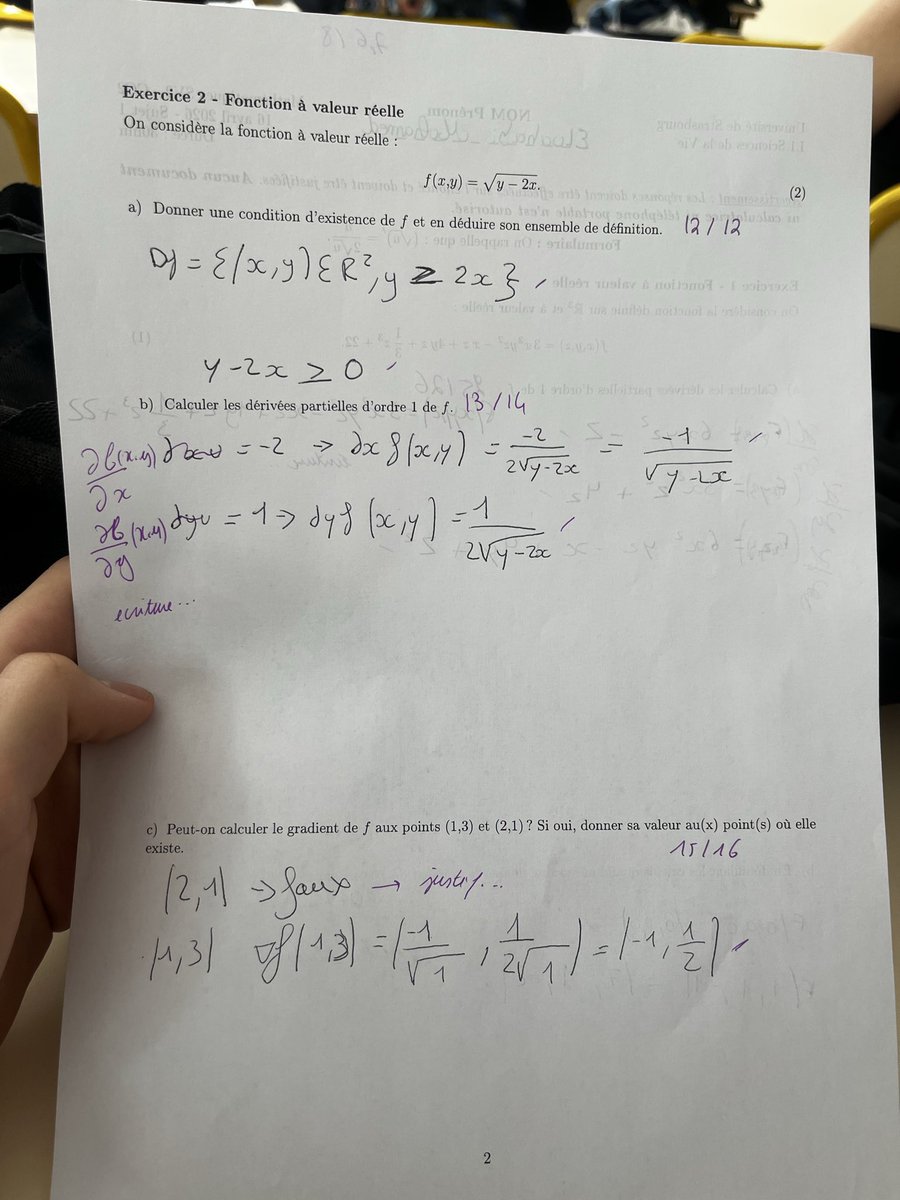 Exercice 2 - Fonction à valeur réelle
On considère la fonction à valeur réelle :
f(x,y) = √(y − 2x).
(2)
a) Donner une condition d'existence de f et en déduire son ensemble de définition. 12/12
Df = {(x,y) ∈ R², y ≥ 2x}
y −2x ≥ 0
b) Calculer les dérivées partielles d'ordre 1 de f. 13/14
∂f/∂x (x,y) = −2 ⇒ ∂x f(x,y) = −2/(2√(y−2x)) = −1/√(y−2x)
∂f/∂y (x,y) = 1 ⇒ ∂y f(x,y) = 1/(2√(y−2x))
ecriture...
c) Peut-on calculer le gradient de f aux points (1,3) et (2,1) ? Si oui, donner sa valeur au(x) point(s) où elle
existe.
15/16
(2,1) ⇒ faux → justif...
(1,3) ∇f(1,3) = (−1/√1, 1/(2√1)) = (−1, 1/2)
2